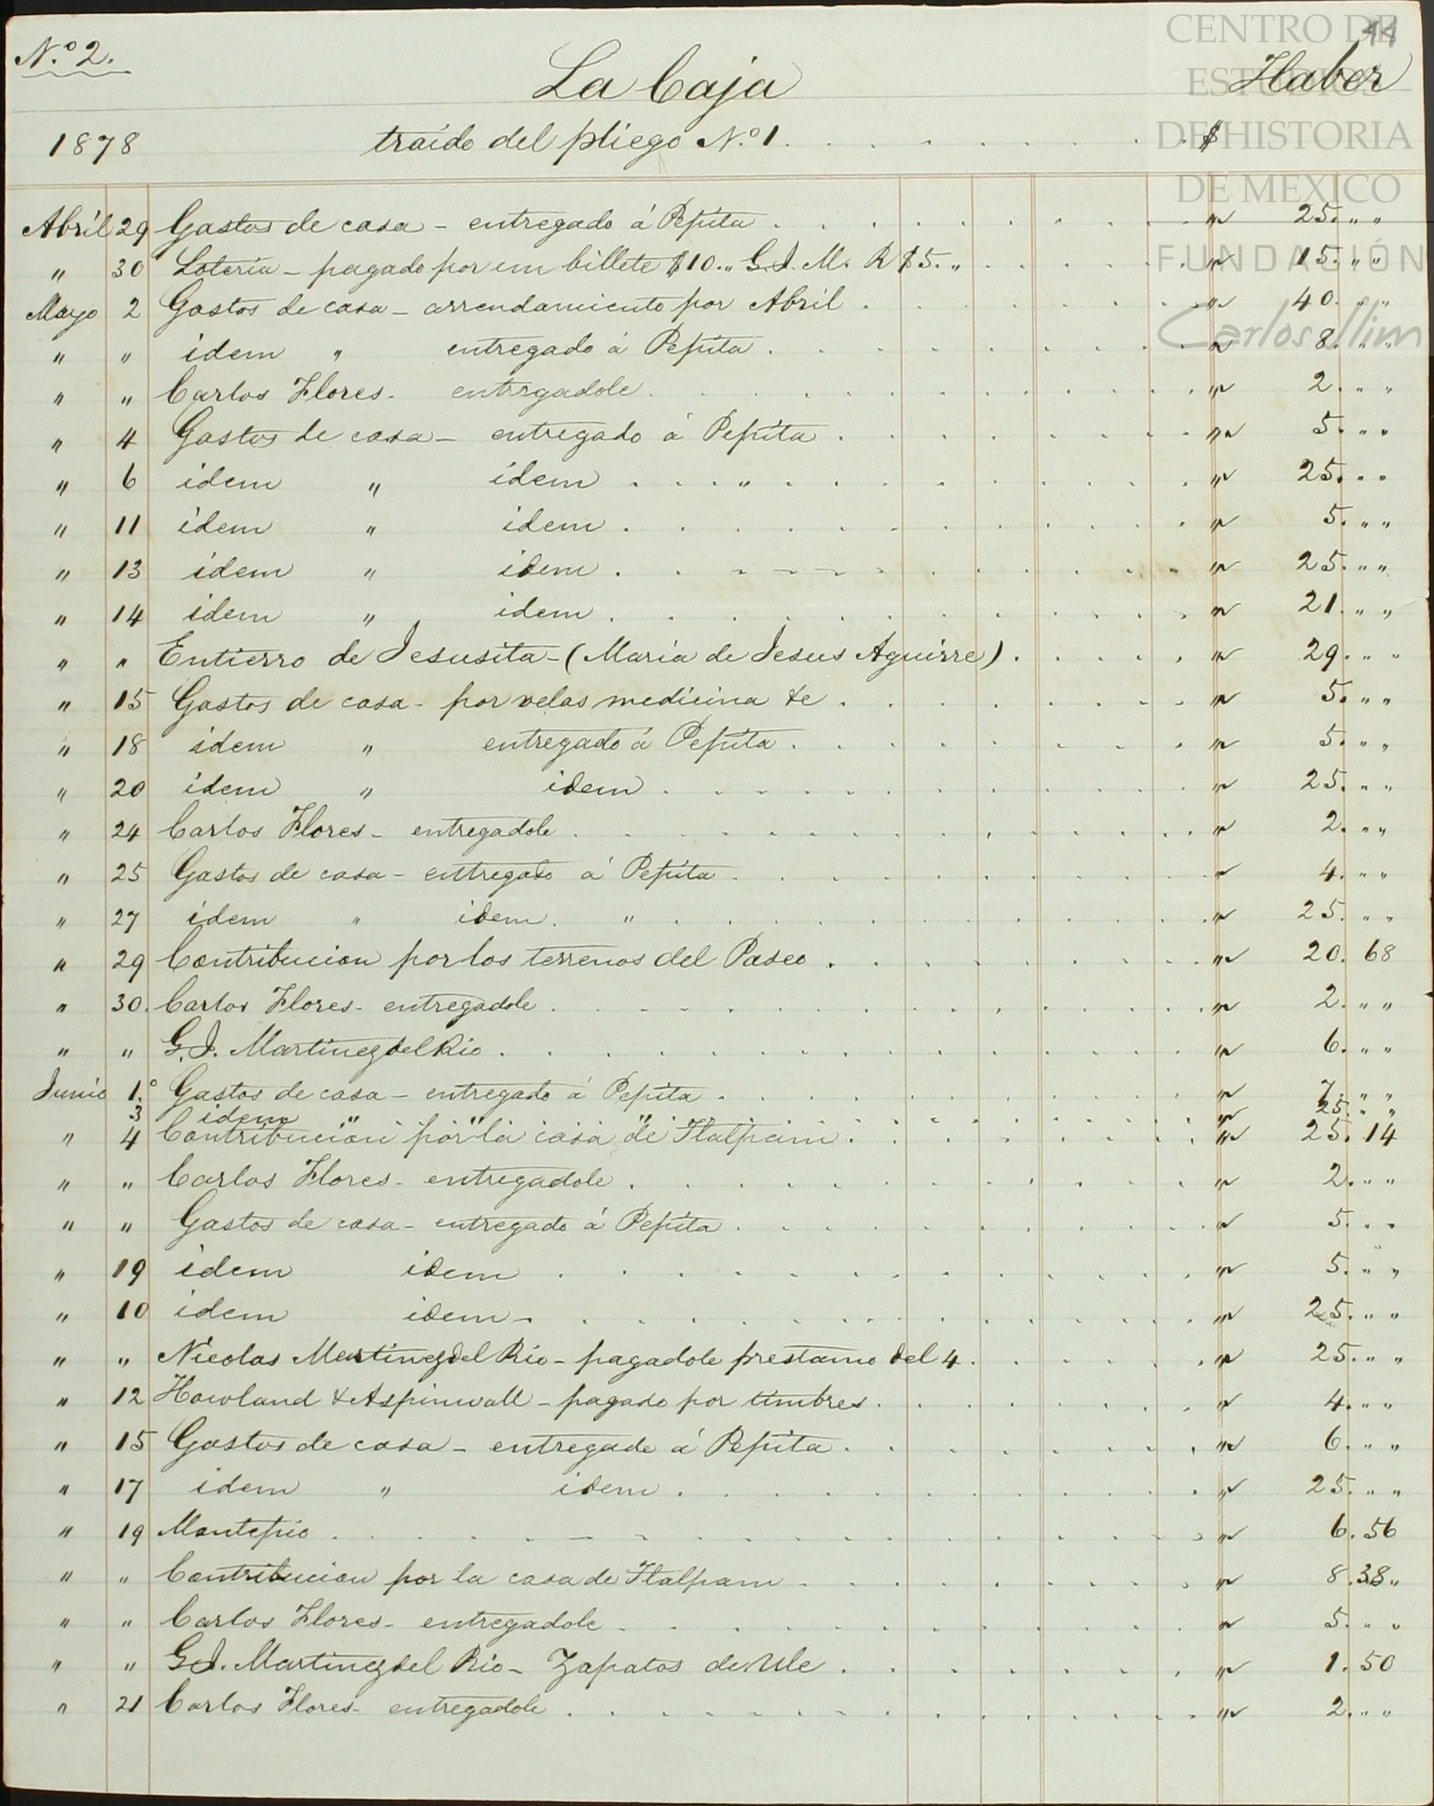 CENTRO DE
ESTUDIOS
DE HISTORIA
DE MEXICO
FUNDACIÓN
Carlos Slim
No. 2.
La Caja Haber
1878 traido del pliego No. 1. $
Abril 29 Gastos de casa - entregado á Pepita " 25. " "
" 30 Loteria - pagado por un billete $10. " G. I. M. R $5. " " 15. " "
Mayo 2 Gastos de casa - arrendamiento por Abril " 40. " "
" " idem " entregado á Pepita " 8. " "
" " Carlos Flores - entregadole " 2. " "
" 4 Gastos de casa - entregado á Pepita " 5. " "
" 6 idem " idem " " 25. " "
" 11 idem " idem " 5. " "
" 13 idem " idem " 25. " "
" 14 idem " idem " 21. " "
" " Entierro de Jesusita - (Maria de Jesus Aguirre) " 29. " "
" 15 Gastos de casa - por velas medicina &c " 5. " "
" 18 idem " entregado á Pepita " 5. " "
" 20 idem " idem " 25. " "
" 24 Carlos Flores - entregadole " 2. " "
" 25 Gastos de casa - entregado á Pepita " 4. " "
" 27 idem " idem " " 25. " "
" 29 Contribucion por los terrenos del Paseo " 20. 68
" 30. Carlos Flores - entregadole " 2. " "
" " G. I. Martinez del Rio " 6. " "
Junio 1.º Gastos de casa - entregado á Pepita " 7. " "
3 idem " " " " 25. " "
" 4 Contribucion por la casa de Tlalpam " 25. 14
" " Carlos Flores - entregadole " 2. " "
" " Gastos de casa - entregado á Pepita " 5. " "
" 19 idem idem " 5. " "
" 10 idem idem " 25. " "
" " Nicolas Martinez del Rio - pagadole prestamo del 4. " 25. " "
" 12 Howland & Aspinwall - pagado por timbres " 4. " "
" 15 Gastos de casa - entregado á Pepita " 6. " "
" 17 idem " idem " 25. " "
" 19 Montepio " 6. 56
" " Contribucion por la casa de Tlalpam " 8. 38 "
" " Carlos Flores - entregadole " 5. " "
" " G. I. Martinez del Rio - Zapatos de Ule " 1. 50
" 21 Carlos Flores - entregadole " 2. " "